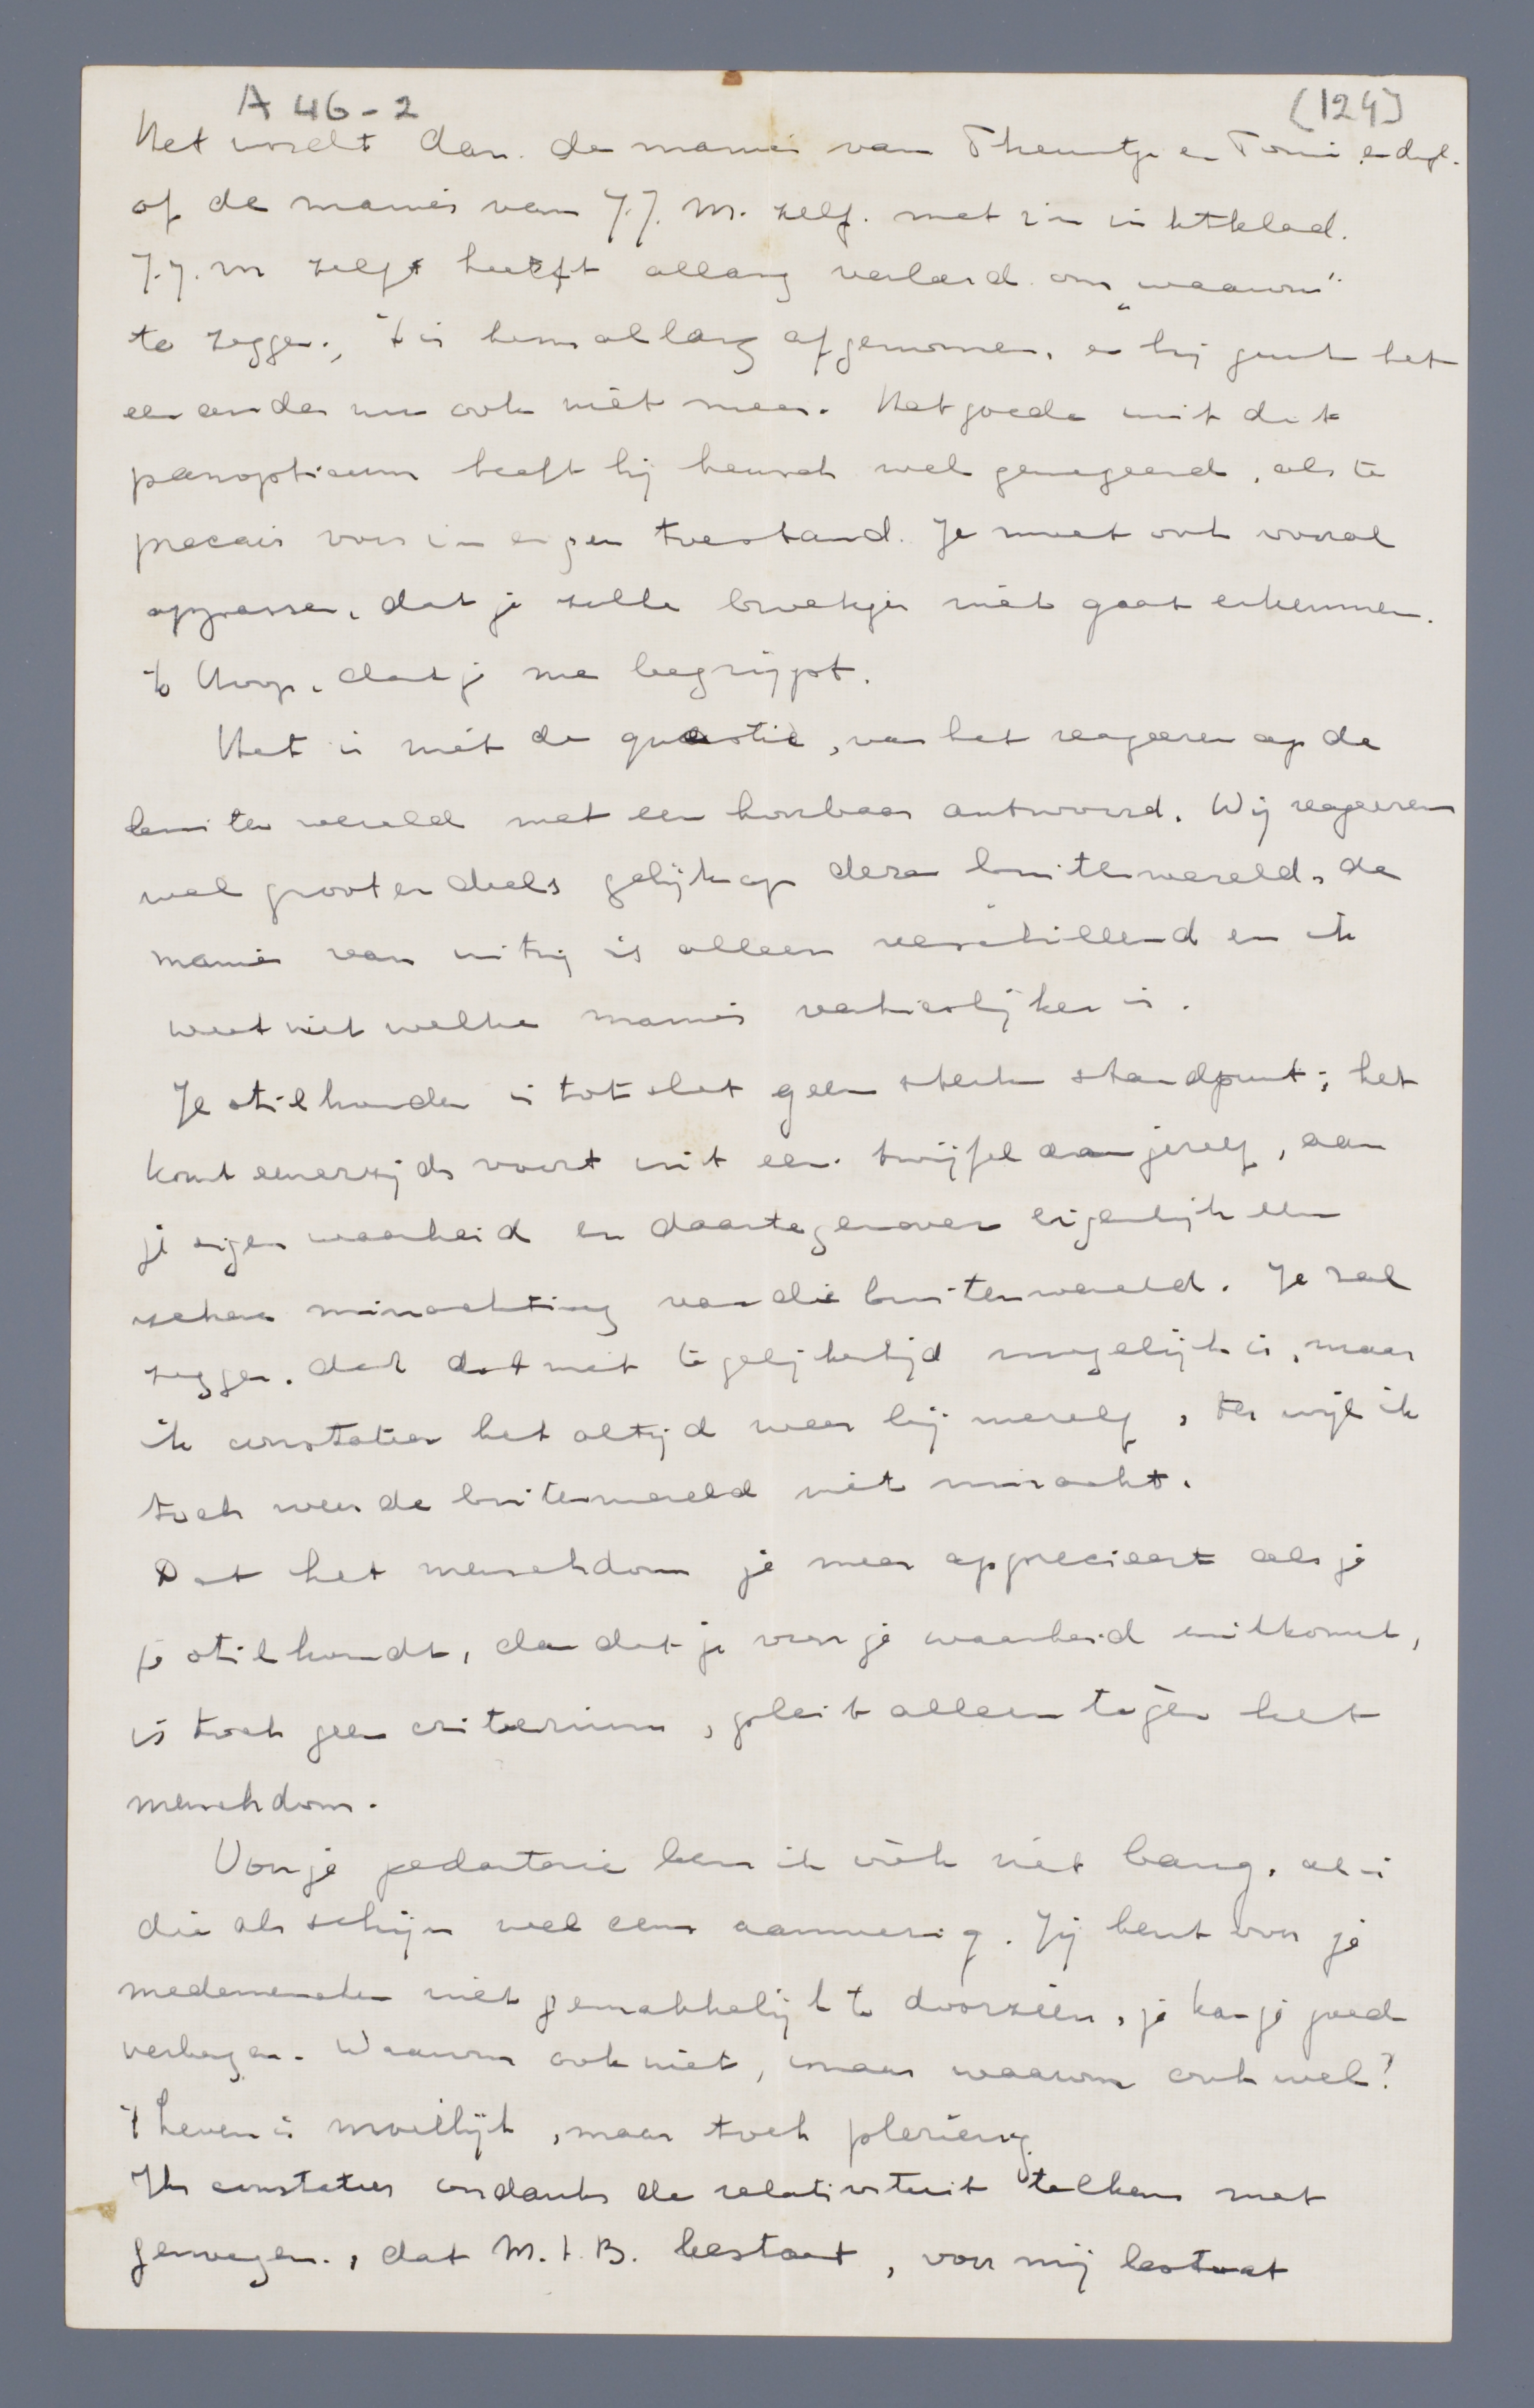 A 46-2
(124)
Het wordt dan de manier van Theuntje en Toni e.dgl.
of de manier van J.J.M. zelf. met z'n inktklad.
J.J.M zelf heeft allang verleerd om „waarom"
te zeggen., 't is hem allang afgenomen, en hij gunt het
een ander nu ook niet meer. Het goede uit dit
panopticum heeft hij heusch wel genegeerd, als te
precair voor z'n eigen toestand. Je moet ook vooral
oppassen, dat je zulke broekjes niet gaat erkennen.
'k Hoop, dat je me begrijpt.
Het is niet de quaestie, van het reageeren op de
buitenwereld met een hoorbaar antwoord. Wij reageeren
wel grootendeels gelijk op deze buitenwereld, de
manier van uiting is alleen verschillend en ik
weet niet welke manier verkieslijker is.
Je stilhouden is tot slot geen sterk standpunt; het
komt eenerzijds voort uit een twijfel aan jezelf, aan
je eigen waarheid en daartegenover eigenlijk een
zekere minachting van die buitenwereld. Je zal
zeggen, dat dat niet tegelijkertijd mogelijk is, maar
ik constateer het altijd weer bij mezelf, terwijl ik
toch weer de buitenwereld niet minacht.
Dat het menschdom je meer apprecieert als je
je stilhoudt, dan dat je voor je waarheid uitkomt,
is toch geen criterium, pleit alleen tegen het
menschdom.
Voor je pedanterie ben ik ook niet bang, al is
die als schijn wel eens aanwezig. Jij bent voor je
medemenschen niet gemakkelijk te doorzien, je kan je goed
verbergen. Waarom ook niet, maar waarom ook wel?
't Leven is moeilijk, maar toch plezierig.
Ik constateer ondanks de relativiteit telkens met
genoegen., dat M.t.B. bestaat, voor mij bestaat